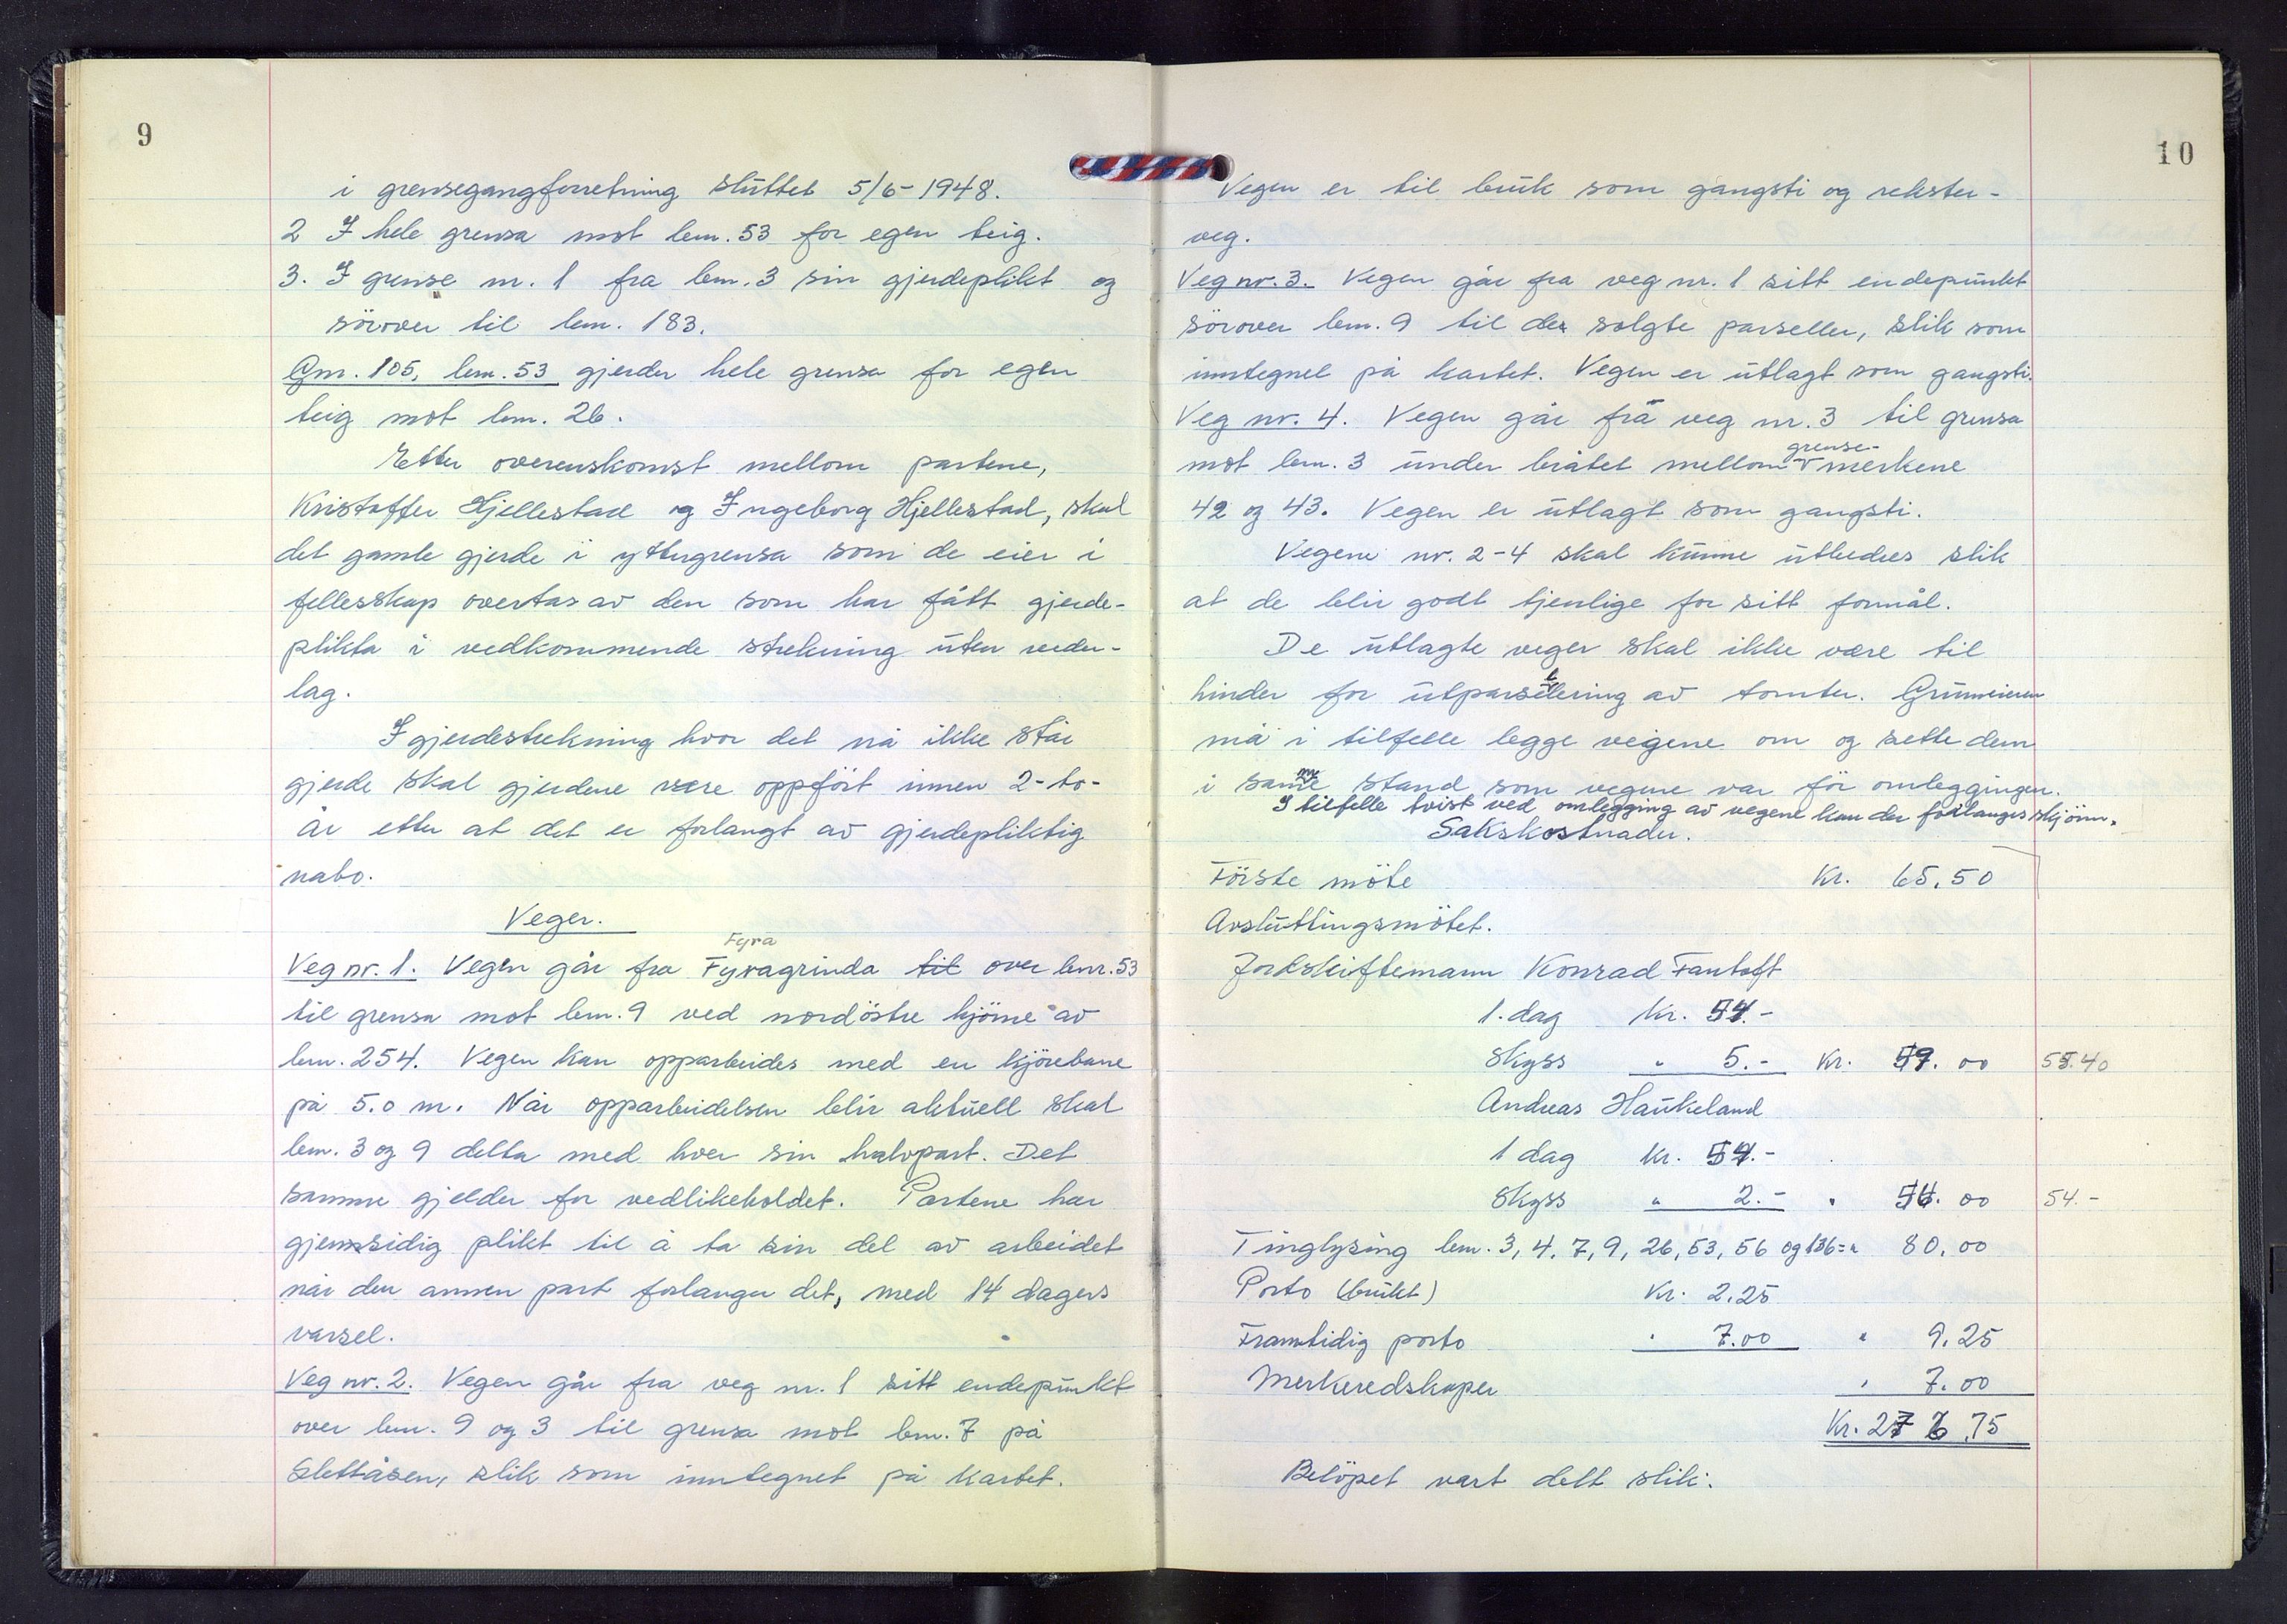 9
i grensegangforretning sluttet 5/6-1948.
2 I hele grensa mot bnr. 53 for egen teig.
3. I grense nr. 1 fra bnr. 3 sin gjerdeplikt og
sörover til bnr. 183.
Gnr. 105, bnr. 53 gjerder hele grensa for egen
teig mot bnr. 26.
Etter overenskomst mellom partene,
Kristoffer Hjellestad og Ingeborg Hjellestad, skal
det gamle gjerde i yttergrensa som de eier i
fellesskap overtas av den som har fått gjerde-
plikta i vedkommende strekning uten veder-
lag.
I gjerdestrekning hvor det nå ikke står
gjerde skal gjerdene være oppfört innen 2-to-
år etter at det er forlangt av gjerdepliktig
nabo.
Veger.
Fyra
Veg nr. 1. Vegen går fra Fyragrinda til over bnr. 53
til grensa mot bnr. 9 ved nordöstre hjörne av
bnr. 254. Vegen kan opparbeides med en kjörebane
på 5.0 m. Når opparbeidelsen blir aktuell skal
bnr. 3 og 9 delta med hver sin halvpart. Det
samme gjelder for vedlikeholdet. Partene har
gjensidig plikt til å ta sin del av arbeidet
når den annen part forlanger det, med 14 dagers
varsel.
Veg nr. 2. Vegen går fra veg nr. 1 sitt endepunkt
over bnr. 9 og 3 til grensa mot bnr. 7 på
Slettåsen, slik som inntegnet på kartet.
10
Vegen er til bruk som gangsti og rekster-
veg.
Veg nr. 3. Vegen går fra veg nr. 1 sitt endepunkt
sörover bnr. 9 til de solgte parseller, slik som
inntegnet på kartet. Vegen er utlagt som gangsti.
Veg nr. 4. Vegen går frå veg nr. 3 til grensa
grense-
mot bnr. 3 under bråtet mellom merkene
42 og 43. Vegen er utlagt som gangsti.
Vegene nr. 2-4 skal kunne utbedres slik
at de blir godt tjenlige for sitt formål.
De utlagte veger skal ikke være til
hinder for utparsellering av tomter. Grunneieren
må i tilfelle legge vegene om og sette dem
i samme stand som vegene var för omleggingen.
I tilfelle tvist ved omlegging av vegene kan der forlanges skjönn.
Sakskostnader.
Förste möte Kr. 65.50
Avsluttingsmötet.
Jordskiftemann Konrad Fantoft
1. dag Kr. 54.-
Skyss " 5.- Kr. 59.00 55.40
Andreas Haukeland
1 dag kr. 54.-
Skyss " 2.- " 56.00 54.-
Tinglysing bnr. 3, 4, 7, 9, 26, 53, 56 og 136 = " 80.00
Porto (brukt) Kr. 2.25
Framtidig porto " 7.00 " 9.25
Merkeredskaper " 7.00
Kr. 276.75
Belöpet vart delt slik: